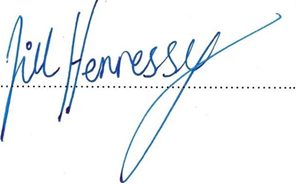 Jill Hennessy